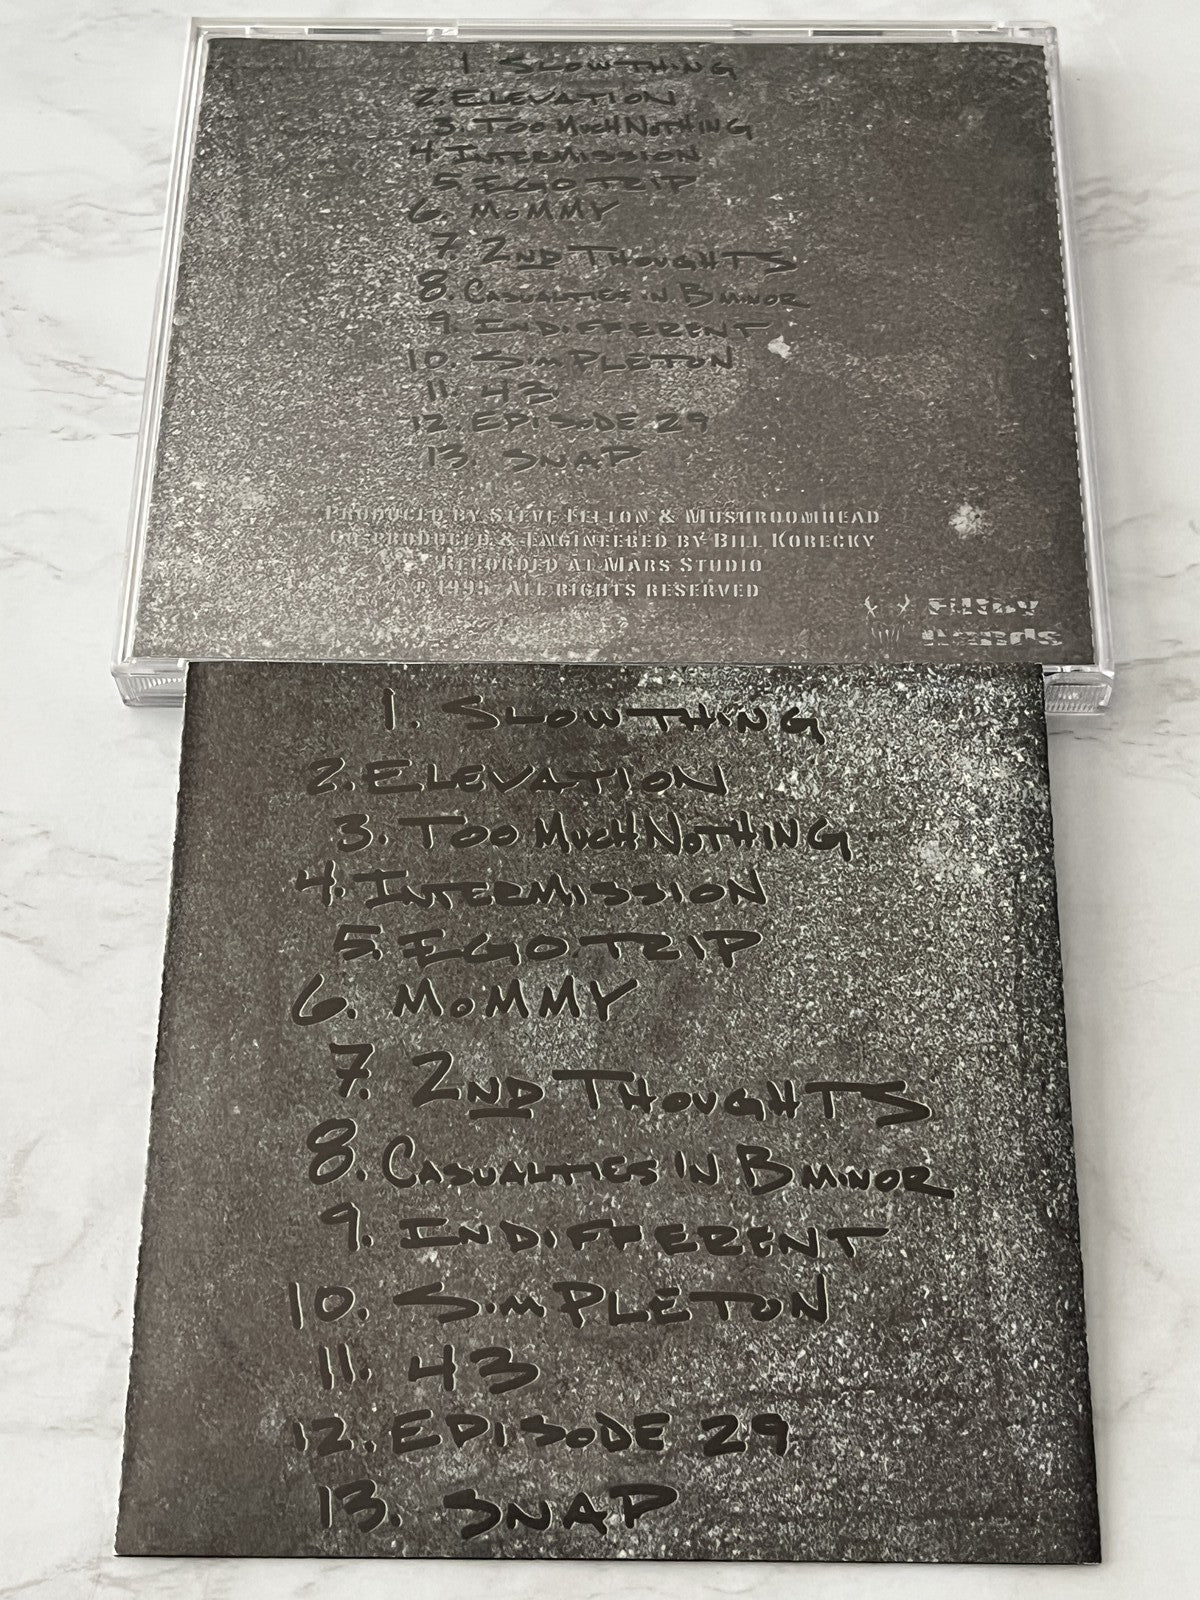 1. SLOW THING
2. ELEVATION
3. TOO MUCH NOTHING
4. INTERMISSION
5 EGO TRIP
6. MOMMY
7. 2ND THOUGHTS
8. CASUALTIES IN B MINOR
9. INDIFFERENT
10. SIMPLETON
11. 43
12. EPISODE 29
13. SNAP
PRODUCED BY STEVE FELTON & MUSHROOMHEAD
CO-PRODUCED & ENGINEERED BY BILL KORECKY
RECORDED AT MARS STUDIO
℗ 1995 ALL RIGHTS RESERVED
FILTHY
HANDS
1. SLOW THING
2. ELEVATION
3. TOO MUCH NOTHING
4. INTERMISSION
5. EGO TRIP
6. MOMMY
7. 2ND THOUGHTS
8. CASUALTIES IN B MINOR
9. INDIFFERENT
10. SIMPLETON
11. 43
12. EPISODE 29
13. SNAP